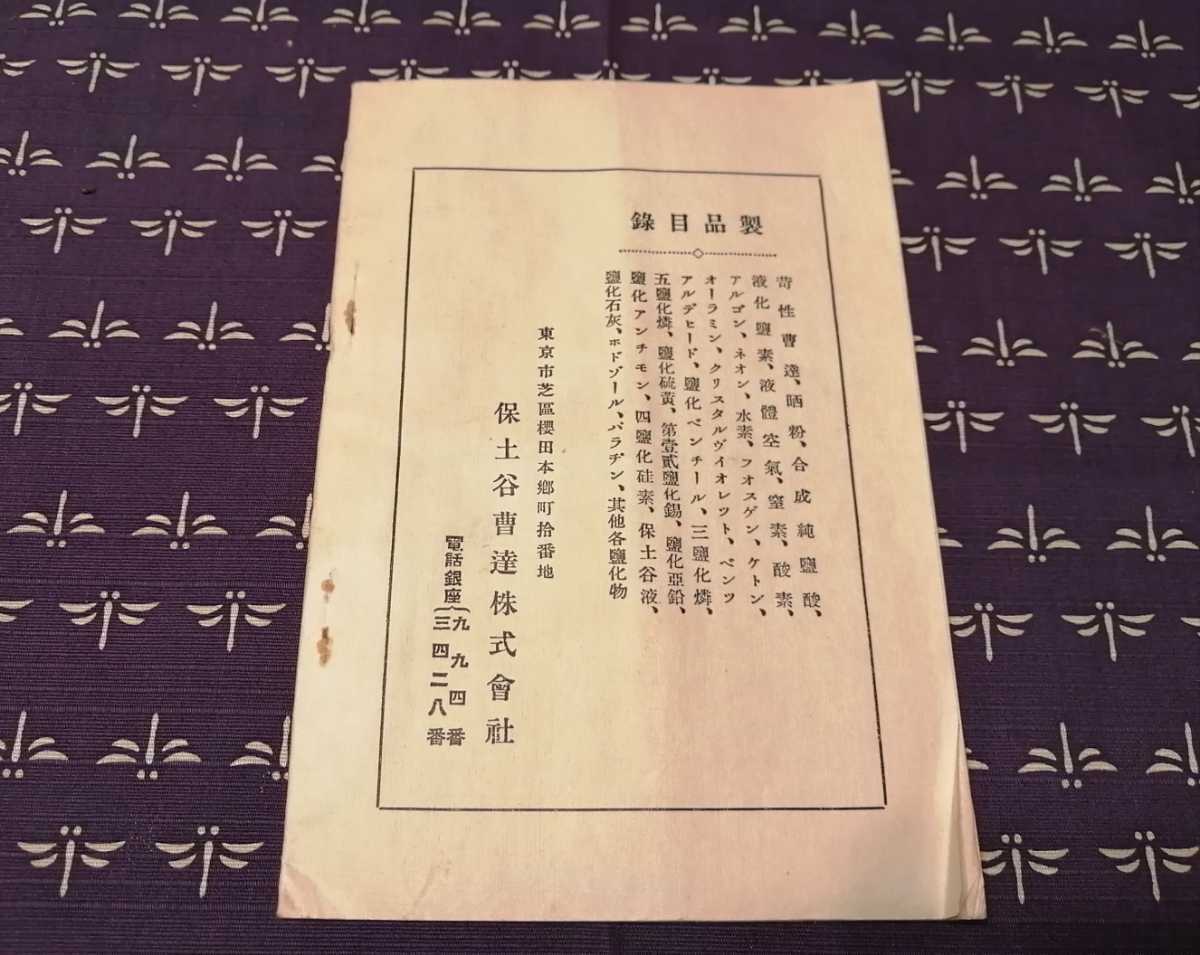 錄目品製
苛性曹達、晒粉、合成純鹽酸、
液化鹽素、液體空氣、窒素、酸素、
アルゴン、ネオン、水素、フオスゲン、ケトン、
オーラミン、クリスタルヴイオレツト、ベンツ
アルデヒード、鹽化ベンチール、三鹽化燐、
五鹽化燐、鹽化硫黄、第壹貳鹽化錫、鹽化亞鉛、
鹽化アンチモン、四鹽化硅素、保土谷液、
鹽化石灰、ホドゾール、パラヂン、其他各鹽化物
東京市芝區櫻田本鄕町拾番地
保土谷曹達株式會社
電話銀座(九九四番
三四二八番